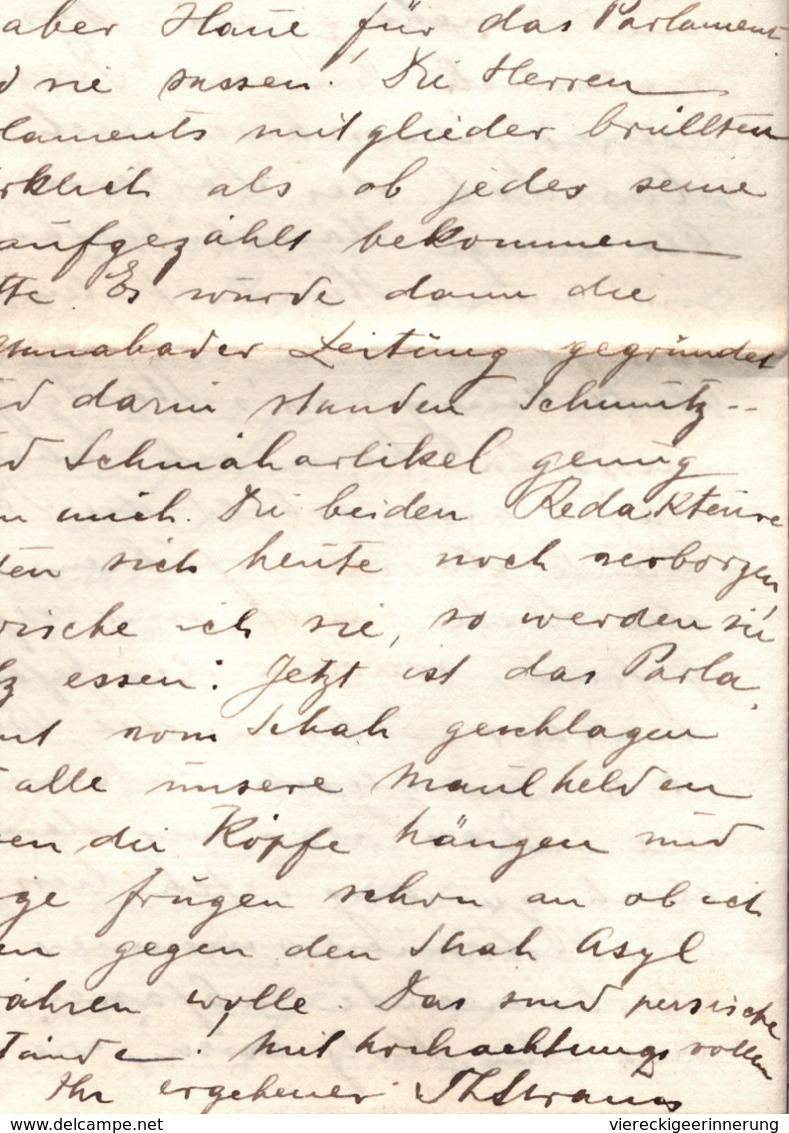 aber Haue für das Parlament
d sie sassen! Die Herren
laments mitglieder brüllten
rklich als ob jeder seine
aufgezählt bekommen
tte. Es wurde dann die
abader Zeitung gegründet
d darin standen Schmutz-
d Schmähartikel genug
n mich. Die beiden Redakteure
ten sich heute noch verborgen,
rische ich sie, so werden sie
lz essen! Jetzt ist das Parla
nt vom Schah geschlagen
alle unsere Maulhelden
en die Köpfe hängen und
ge frugen schon an ob ich
en gegen den Shah Asyl
ähren wolle. Das sind persische
tände! Mit hochachtungsvollem
Ihr ergebener ThStrauss
www.delcampe.net
viereckigeerinnerung